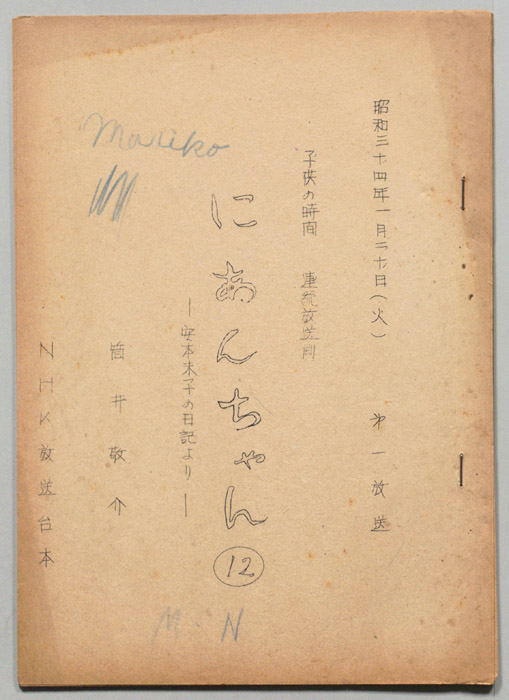 昭和三十四年一月二十日(火) 第一放送
子供の時間 連続放送劇
にあんちゃん ⑫
―安本末子の日記より―
筒井敬介
NHK放送台本
Mariko
M.N